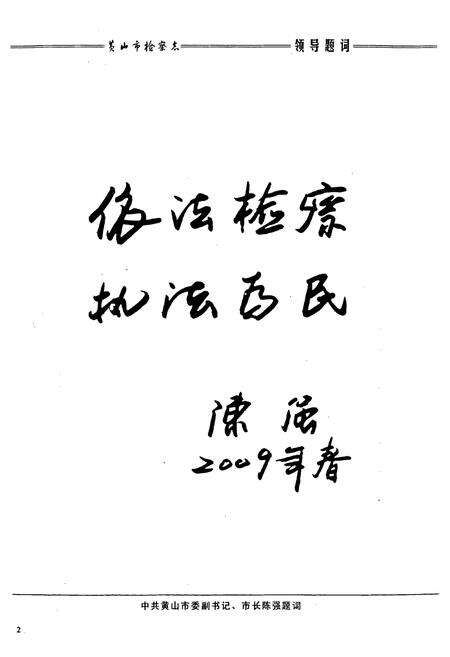 黄山市检察志 领导题词
依法检察
执法为民
陈强
2009年春
中共黄山市委副书记、市长陈强题词
2